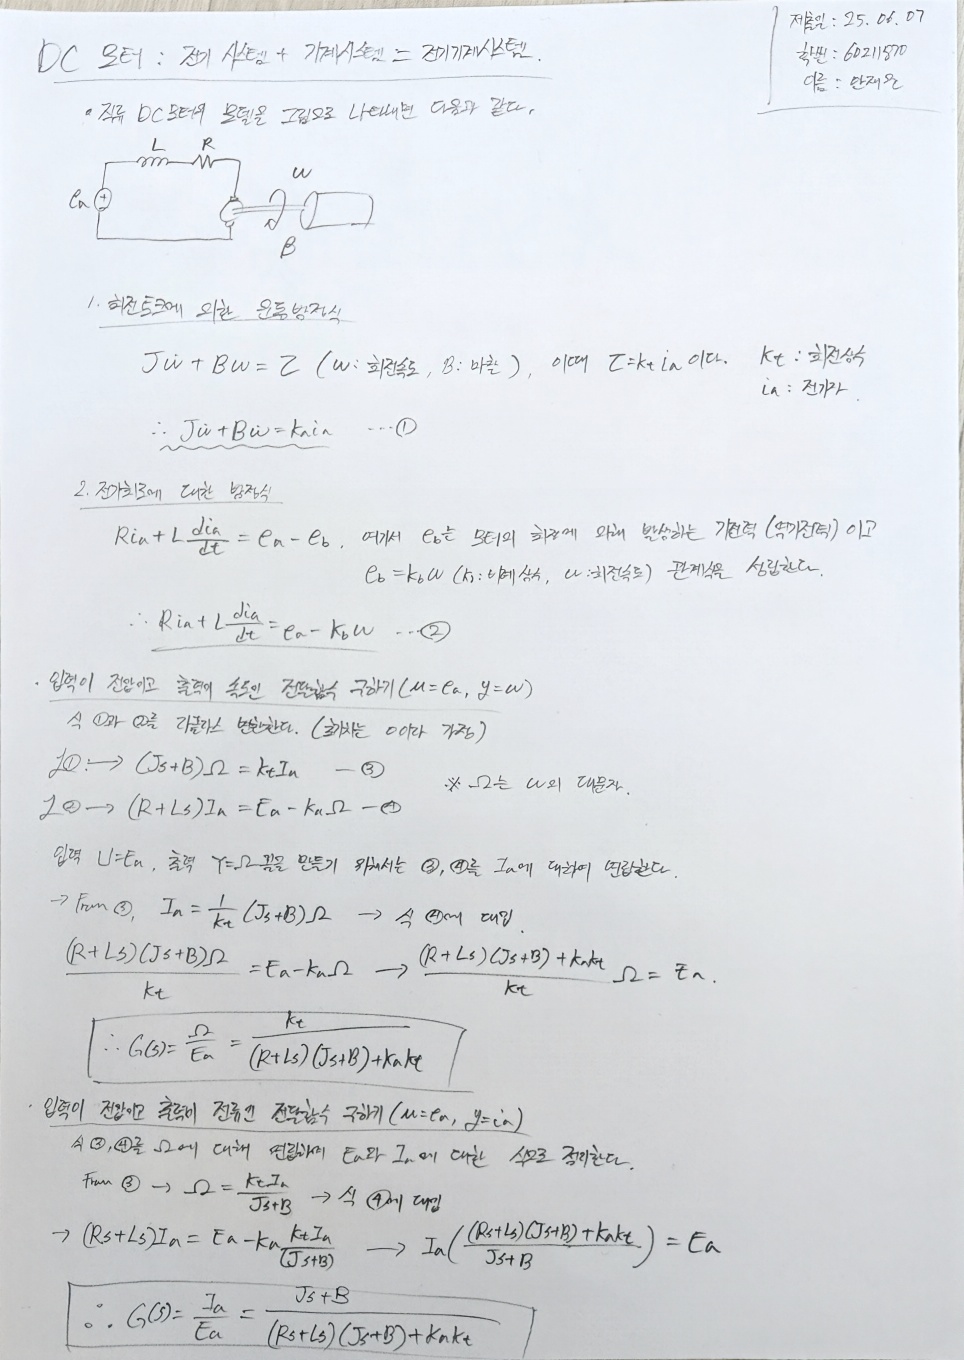 제출일 : 25. 06. 07
학번 : 60211570
이름 : 안재완
DC 모터 : 전기 시스템 + 기계시스템 = 전기기계시스템.
• 직류 DC모터의 모델을 그림으로 나타내면 다음과 같다.
L R
ω
ea
B
1. 회전토크에 의한 운동방정식
Jω̇ + Bω = τ (ω: 회전속도, B: 마찰), 이때 τ=kt ia 이다. kt : 회전상수
ia : 전기자
∴ Jω̇+Bω=kaia ---①
2. 전기회로에 대한 방정식
Ria + L dia/dt = ea - eb, 여기서 eb는 모터의 회전에 의해 발생하는 기전력(역기전력)이고
eb = kbω (kb:비례상수, ω:회전속도) 관계식은 성립한다.
∴ Ria + L dia/dt = ea - kbω ---②
• 입력이 전압이고 출력이 속도인 전달함수 구하기(u=ea, y=ω)
식 ①과 ②를 라플라스 변환한다. (초기치는 0이라 가정)
ℒ① → (Js+B)Ω = ktIa -③
※ Ω는 ω의 대문자.
ℒ② → (R+Ls)Ia = Ea - kaΩ -④
입력 U=Ea, 출력 Y=Ω 꼴을 만들기 위해서는 ③, ④를 Ia에 대하여 연립한다.
→ From ③, Ia = 1/kt (Js+B)Ω → 식 ④에 대입
(R+Ls)(Js+B)Ω/kt = Ea-kaΩ → ((R+Ls)(Js+B)+kakt)/kt Ω = Ea.
∴ G(s) = Ω/Ea = kt/((R+Ls)(Js+B)+kakt)
• 입력이 전압이고 출력이 전류인 전달함수 구하기(u=ea, y=ia)
식 ③,④를 Ω에 대해 연립하여 Ea와 Ia에 대한 식으로 정의한다.
From ③ → Ω = ktIa/(Js+B) → 식 ④에 대입
→ (Rs+Ls)Ia = Ea - ka ktIa/(Js+B) → Ia(((Rs+Ls)(Js+B)+kakt)/(Js+B)) = Ea
∴ G(s) = Ia/Ea = (Js+B)/((Rs+Ls)(Js+B)+kakt)